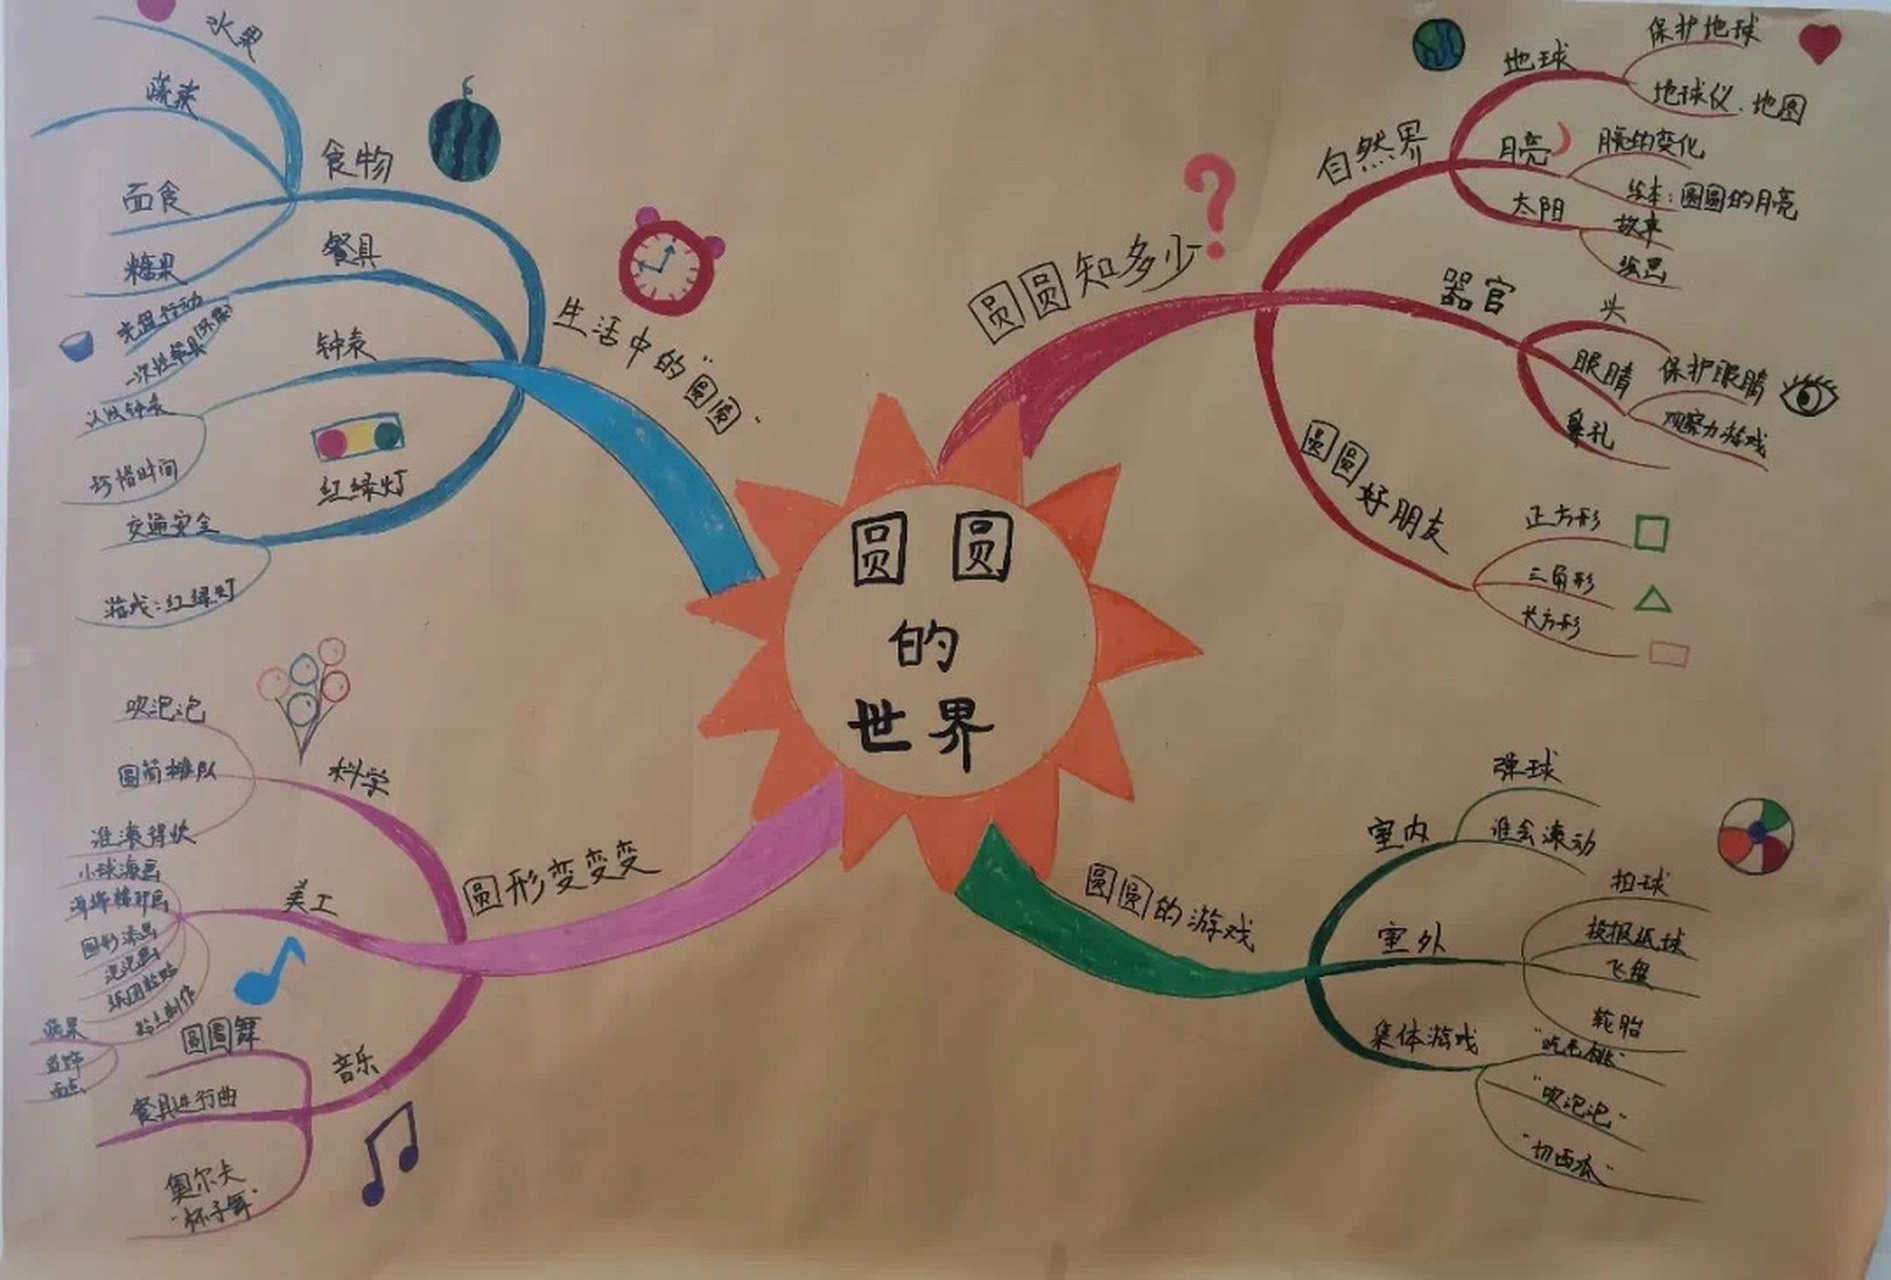 圆圆
的
世界
圆圆知多少
自然界
地球
保护地球
地球仪、地图
月亮
月亮的变化
绘本:圆圆的月亮
太阳
故事
绘画
器官
头
眼睛
保护眼睛
观察力游戏
鼻孔
圆圆好朋友
正方形
三角形
长方形
圆圆的游戏
室内
弹球
谁会滚动
室外
拍球
投报纸球
飞盘
轮胎
集体游戏
"吹泡泡"
"切西瓜"
圆形变变变
科学
吹泡泡
圆筒排队
谁滚得快
美工
小球滚画
圆形添画
泡泡画
纸团粘贴
粘土制作
蔬果
首饰
面点
音乐
圆圆舞
餐具进行曲
奥尔夫
"杯子舞"
生活中的"圆圆"
食物
水果
蔬菜
面食
糖果
餐具
光盘行动
一次性餐具(环保)
钟表
认识钟表
珍惜时间
红绿灯
交通安全
游戏:红绿灯